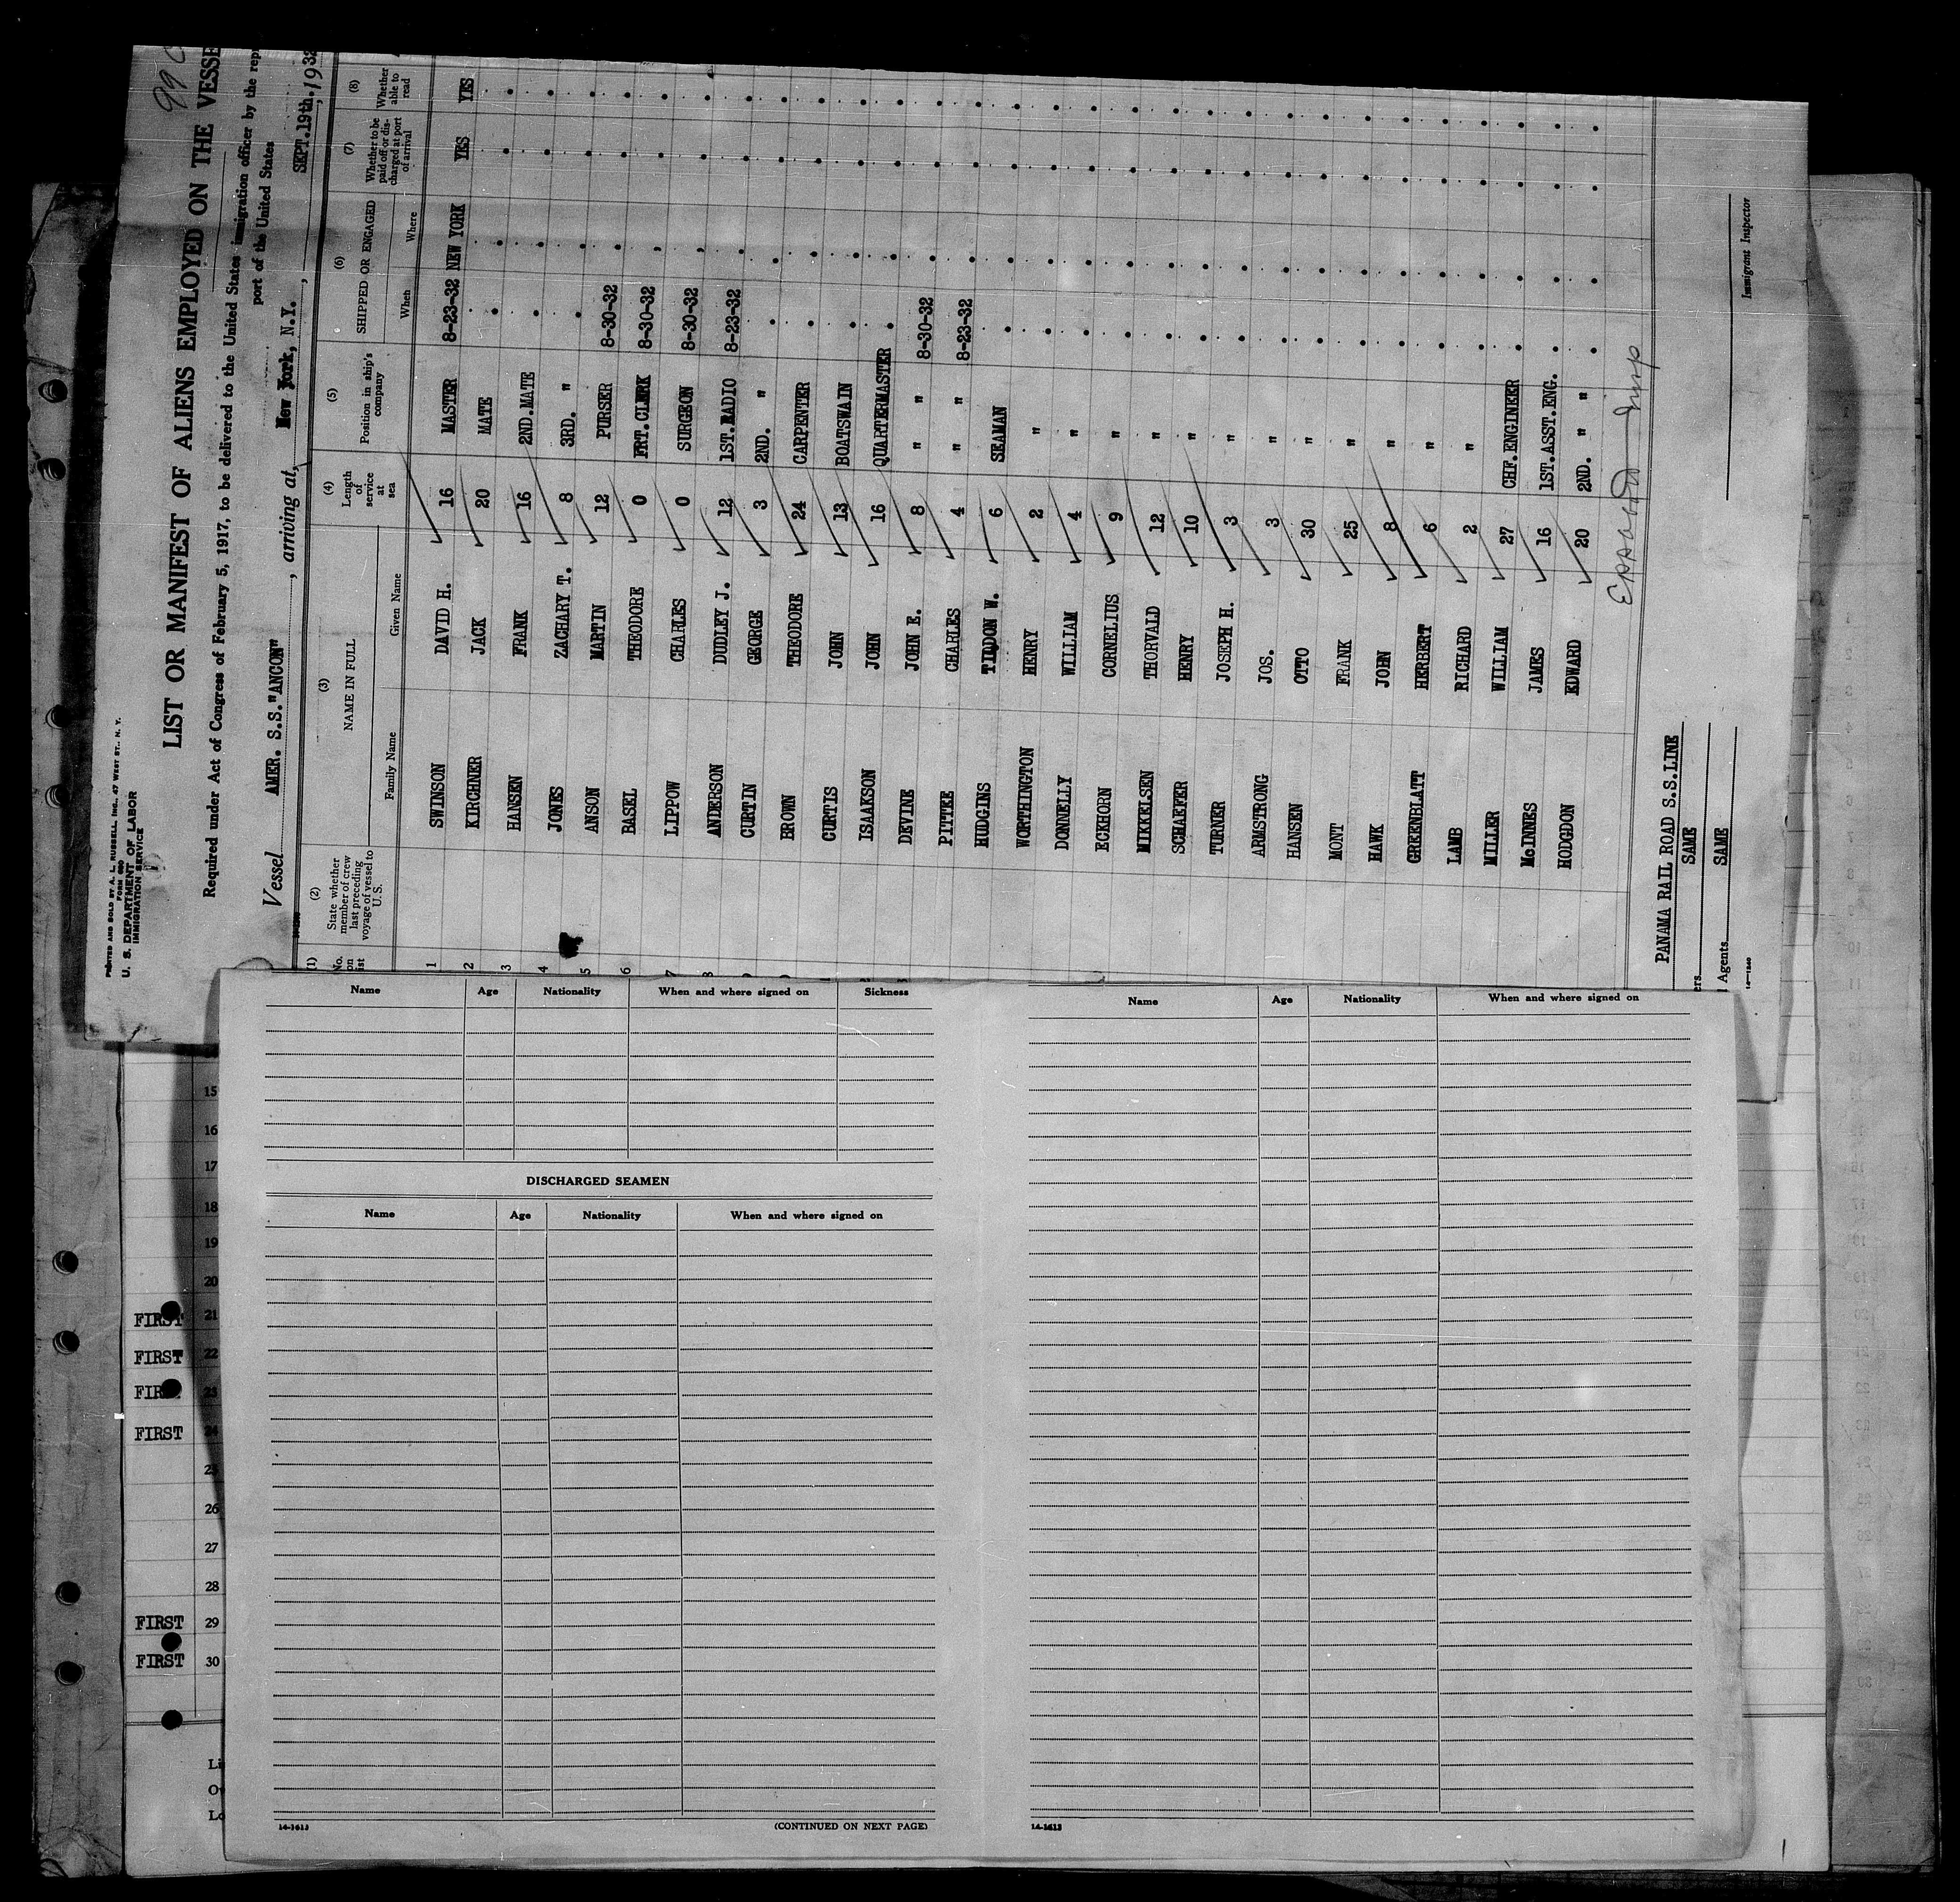 PRINTED AND SOLD BY A. L. RUSSELL, INC., 47 WEST ST., N. Y.
FORM 680
U. S. DEPARTMENT OF LABOR
IMMIGRATION SERVICE
LIST OR MANIFEST OF ALIENS EMPLOYED ON THE VESSE
Required under Act of Congress of February 5, 1917, to be delivered to the United States immigration officer by the rep
port of the United States
Vessel AMER. S.S."ANCON", arriving at, New York, N.Y., SEPT.19th., 1932
(1) (2) (3) (4) (5) (6) (7) (8)
No. on ist
State whether member of crew last preceding voyage of vessel to U. S.
NAME IN FULL
Family Name Given Name
Length of service at sea
Position in ship's company
SHIPPED OR ENGAGED
When Where
Whether to be paid off or discharged at port of arrival
Whether able to read
1 SWINSON DAVID H. 16 MASTER 8-23-32 NEW YORK YES YES
2 KIRCHNER JACK 20 MATE
3 HANSEN FRANK 16 2ND.MATE
4 JONES ZACHARY T. 8 3RD. "
5 ANSON MARTIN 12 PURSER 8-30-32
6 BASEL THEODORE 0 FRT.CLERK 8-30-32
7 LIPPOW CHARLES 0 SURGEON 8-30-32
ANDERSON DUDLEY J. 12 1ST.RADIO 8-23-32
CURTIN GEORGE 3 2ND. "
BROWN THEODORE 24 CARPENTER
CURTIS JOHN 13 BOATSWAIN
ISAKSON JOHN 16 QUARTERMASTER
DEVINE JOHN E. 8 " 8-30-32
PITTEE CHARLES 4 " 8-23-32
HUDGINS W. 6 SEAMAN
WORTHINGTON HENRY 2 "
DONNELLY WILLIAM 4 "
ECKHORN CORNELIUS 9 "
MIKKELSEN THORVALD 12 "
SCHAEFER HENRY 10 "
TURNER JOSEPH H. 3 "
ARMSTRONG JOS. 3 "
HANSEN OTTO 30 "
MONT FRANK 25 "
HAWK JOHN 8 "
GREENBLATT HERBERT 6 "
LAMB RICHARD 2 "
MILLER WILLIAM 27 CHF.ENGINEER
McINNES JAMES 16 1ST.ASST.ENG.
HODGDON EDWARD 20 2ND. " "
PANAMA RAIL ROAD S.S.LINE
ers SAME
Agents SAME
14-1240
Immigrant Inspector
Name Age Nationality When and where signed on Sickness
DISCHARGED SEAMEN
Name Age Nationality When and where signed on
14-1613
(CONTINUED ON NEXT PAGE)
Name Age Nationality When and where signed on
14-1613
15
16
17
18
19
20
FIRST 21
FIRST 22
FIRST 23
FIRST 24
25
26
27
28
FIRST 29
FIRST 30